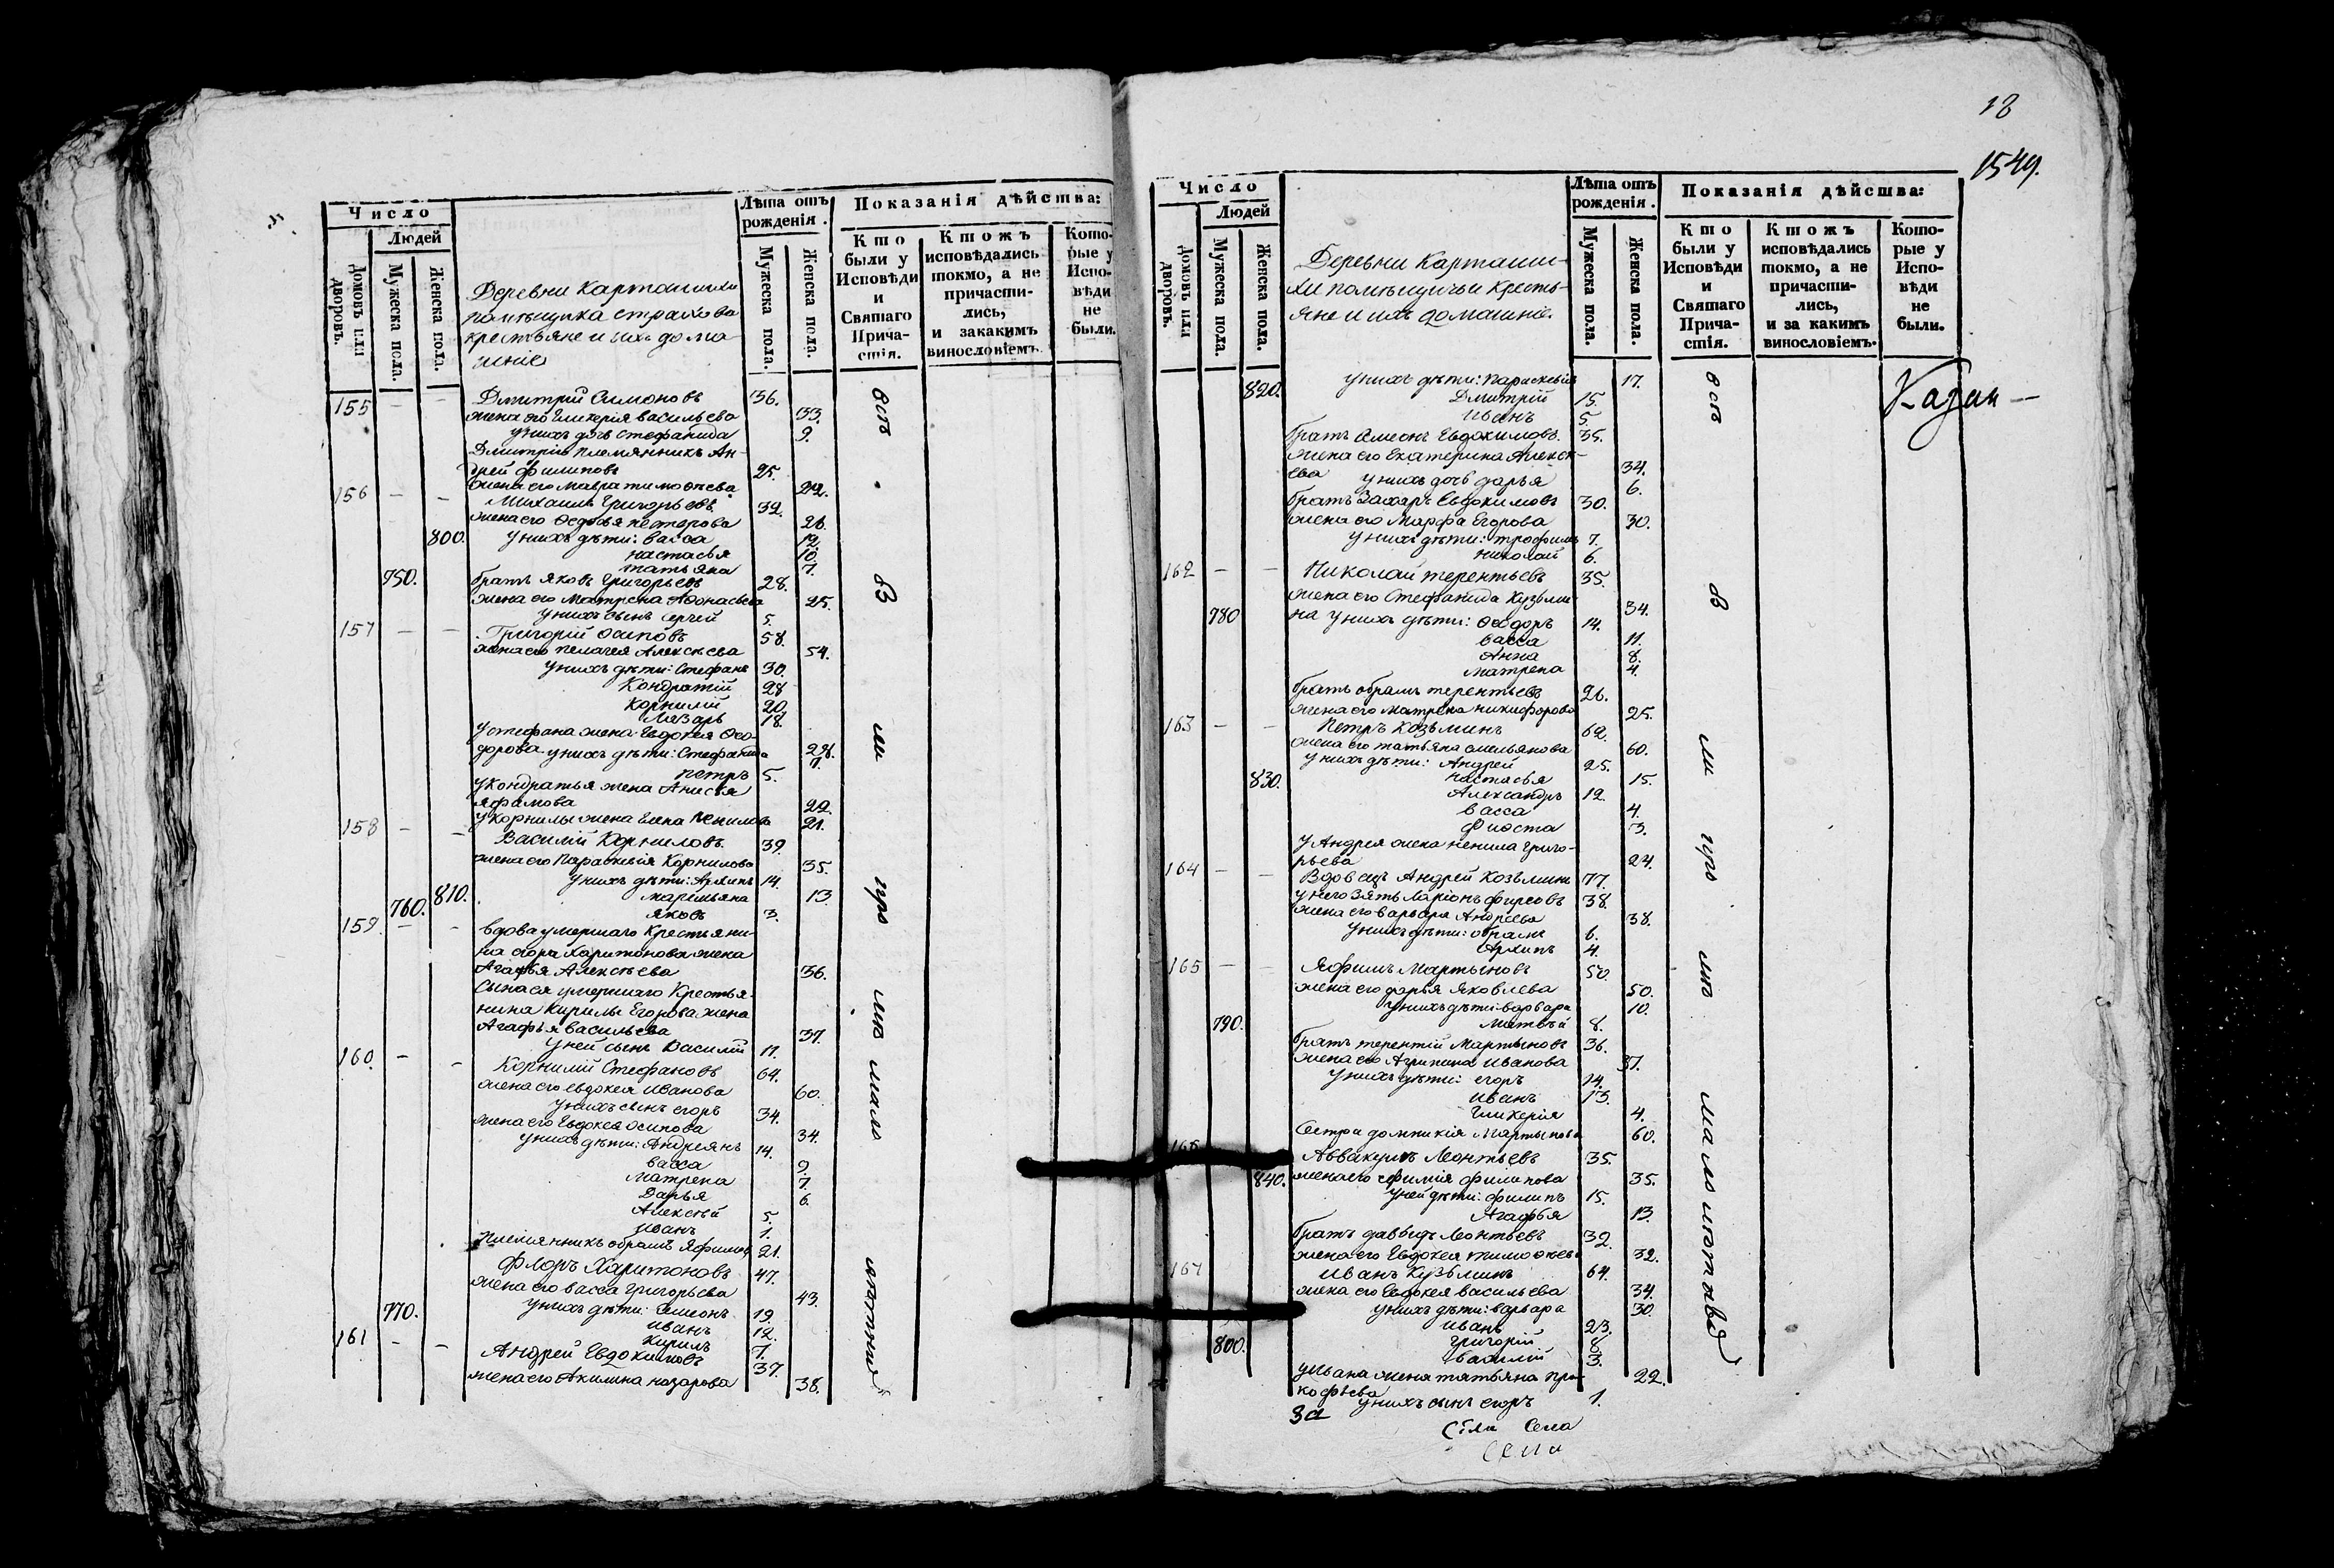 Число
Лѣта отъ рожденія.
Показанія дѣйства:
Домовъ или дворовъ.
Людей
Мужеска пола.
Женска пола.
Деревни Карташихи
помѣщика страхова
крестьяне и ихъ дома-
шніе
Мужеска пола.
Женска пола.
Кто были у Исповѣди и Святаго Прича-стія.
Ктожъ исповѣдались токмо, а не причасти-лись, и закакимъ винословіемъ.
Кото-рые у Испо-вѣди не были.
155 — — Дмитрій Симоновъ 36.
жена его Гликерія васильева 33.
у нихъ дочь Стефанида 9.
Дмитрія племянникъ Ан-
дрей филиповъ 25.
жена его мавра тимоѳеева 242.
156 — — Михаилъ Григорьевъ 32.
жена его Ѳедосья несторова 26.
800. у нихъ дѣти: васса 12.
настасья 10.
татьяна 7.
750. братъ яковъ Григорьевъ 28.
жена его Матрена Аѳонасьева 25.
у нихъ сынъ Сергей 5.
157 — — Григорій Осиповъ 58.
жена его пелагея Алексѣева 54.
у нихъ дѣти: Стефанъ 30.
Кондратій 28
Корнилій 20.
Лазарь 18.
у стефана жена Евдокея Ѳео-
дорова у нихъ дѣти: Стефанида 28. 7.
петръ 5.
у Кондратья жена Анисья
яфамова 22.
у Корнилы жена Елена 21.
158 — — Василій Корниловъ 39.
жена его Параскевія Корнилова 35.
у нихъ дѣти: Архипъ 14.
810. маремьяна 13.
760. яковъ 3.
159. — — вдова умершаго Крестьяни-
на егора Харитонова жена
Агафья Алексѣева 36.
Сына ея умершаго Крестья-
нина Кирилы Егорова жена
Агафья васильева 37.
у ней сынъ Василій 11.
160. — — Корнилій Стефановъ 64.
жена его евдокея Иванова 60.
у нихъ сынъ егоръ 34.
жена его Евдокея Осипова 34.
у нихъ дѣти: Андреянъ 14.
васса 9.
матрена 7.
Дарья 6.
Алексѣй 5.
иванъ 1.
племянникъ обрамъ Яфимовъ 21.
флоръ Харитоновъ 47.
жена его васса Григорьева 43.
770. у нихъ дѣти: Симеонъ 19.
иванъ 12.
Кирилъ 7.
161 — — Андрей Евдокимовъ 37.
жена его Акилина назарова 38.
18
1549.
Число
Лѣта отъ рожденія.
Показанія дѣйства:
Домовъ или дворовъ.
Людей
Мужеска пола.
Женска пола.
Деревни Карташи-
хи помѣщичьи кресть-
яне и ихъ домашніе.
Мужеска пола.
Женска пола.
Кто были у Исповѣди и Святаго Прича-стія.
Ктожъ исповѣдались токмо, а не причасти-лись, и за какимъ винословіемъ.
Кото-рые у Испо-вѣди не были.
Казан—
820. у нихъ дѣти: параскевія 17.
Дмитрій 15.
иванъ 5.
братъ Симеонъ Евдокимовъ. 35.
жена его Екатерина Алексѣ-
ева 34.
у нихъ дочь дарья 6.
братъ Захаръ Евдокимовъ 30.
жена его Марфа Егорова 30.
у нихъ дѣти: трофимъ 7.
николай 6.
162 — — Николай терентьевъ 35.
жена его Стефанида Кузьми-
780 на 34.
у нихъ дѣти: Ѳеодоръ 14.
васса 11.
Анна 8.
матрена 4.
братъ обрамъ терентьевъ 26.
жена его матрена никифорова 25.
163 — — Петръ Козьминъ 62.
жена его татьяна емельянова 60.
у нихъ дѣти: Андрей 25.
830. настасья 15.
Александръ 12.
васса 4.
3.
у Андрея жена ненила Григо-
рьева 24.
164 — — Вдовецъ Андрей Козьминъ 77.
у него зять Ларіонъ фирсовъ 38.
жена его варвара Андреева 38.
у нихъ дѣти: обрамъ 6.
Архипъ 4.
165 — — Яфимъ Мартыновъ 50.
жена его дарья Яковлева 50.
у нихъ дѣти: варвара 10.
790. матвѣй 8.
братъ терентій Мартыновъ 36.
жена его Агрипина Иванова 37.
у нихъ дѣти: егоръ 14.
иванъ 13.
Гликерія 4.
Сестра домникія Мартынова 60.
166 Аввакумъ Леонтьевъ 35.
840. жена его ефимія филипова 35.
у ней дѣти: филипъ 15.
Агафья 13.
братъ давыдъ Леонтьевъ 32.
жена его Евдокея тимоѳеева 32.
167 Иванъ Кузьминъ 64.
жена его Евдокея васильева 34.
у нихъ дѣти: варвара 30.
иванъ 23.
800. григорій 8.
василій 3.
у Ивана жена татьяна про-
кофьева 22.
у нихъ сынъ егоръ 1.
Села
Села